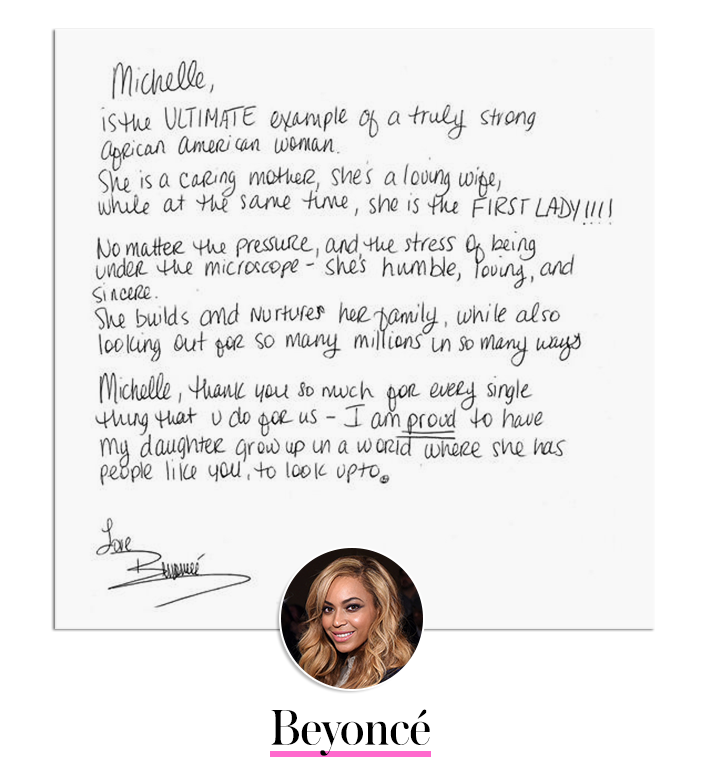 Michelle,
is the ULTIMATE example of a truly strong
african american woman.
She is a caring mother, she's a loving wife,
while at the same time, she is the FIRST LADY!!!!
No matter the pressure, and the stress of being
under the microscope - she's humble, loving, and
sincere.
She builds and nurtures her family, while also
looking out for so many millions in so many ways
Michelle, thank you so much for every single
thing that u do for us - I am proud to have
my daughter grow up in a world where she has
people like you, to look up to.
Love
Beyoncé
Beyoncé